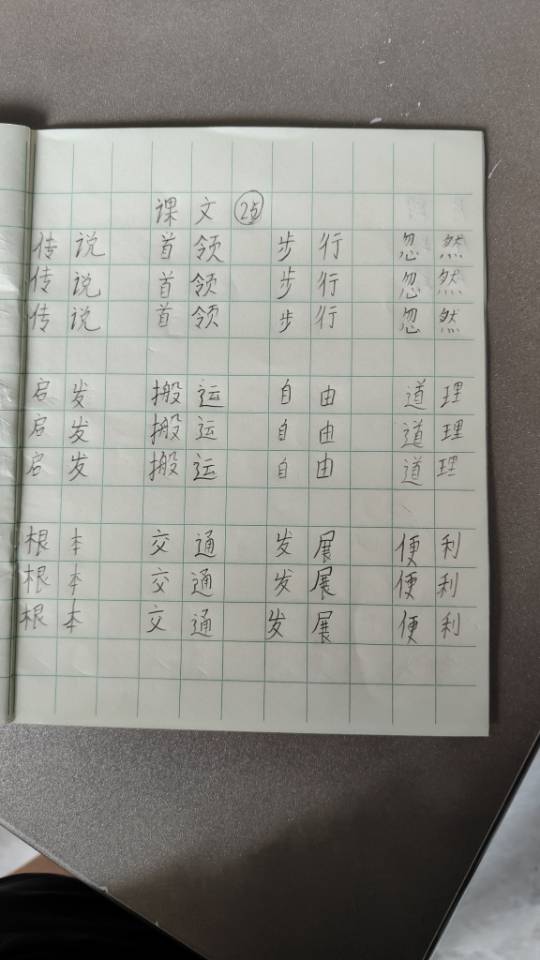 课文 ㉕
传说 首领 步行 忽然
传说 首领 步行 忽然
传说 首领 步行 忽然
启发 搬运 自由 道理
启发 搬运 自由 道理
启发 搬运 自由 道理
根本 交通 发展 便利
根本 交通 发展 便利
根本 交通 发展 便利